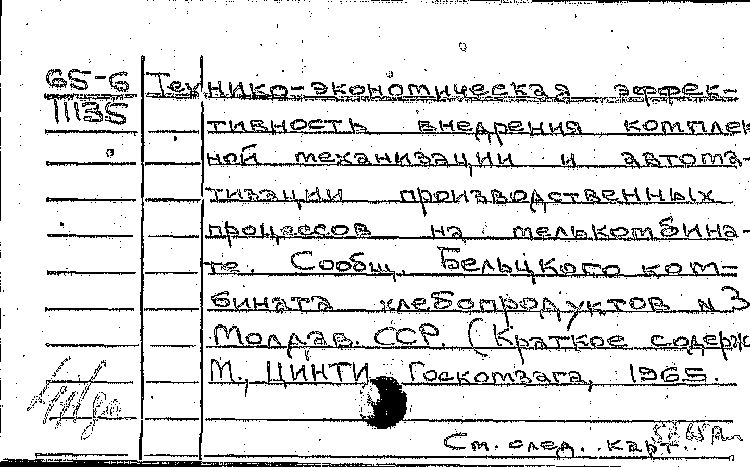 65-6 Технико-экономическая эффек-
11135
тивность внедрения комплек
ной механизации и автома-
тизации производственных
процессов на мелькомбина-
те. Сообщ. Бельцкого ком-
бината хлебопродуктов №3
Молдав. ССР. (Краткое содерж
М., ЦИНТИ Госкомзага, 1965.
См. след. карт.